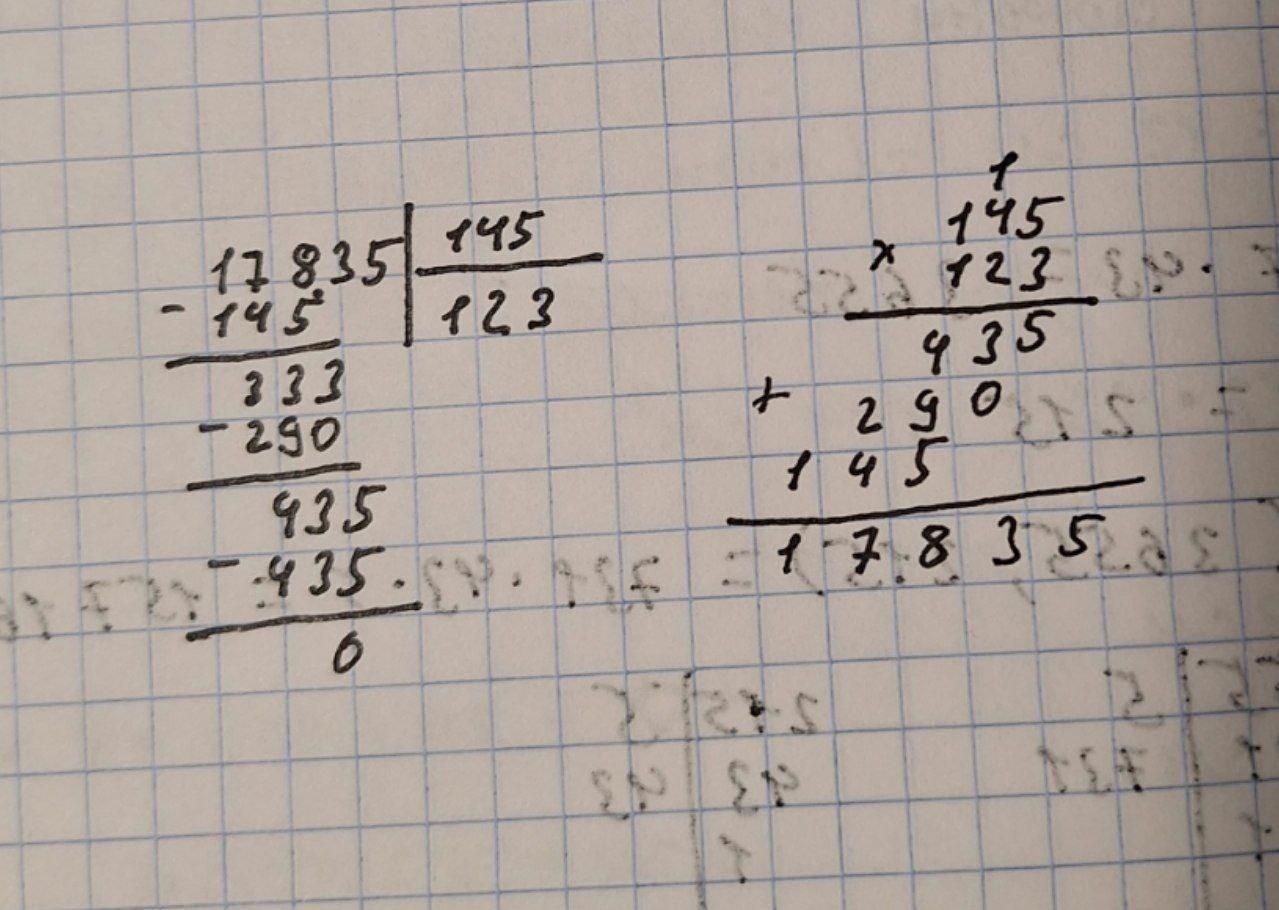 17835 | 145
- 145 | 123
333
- 290
435
- 435
0
1
145
× 123
435
+ 290
145
17835